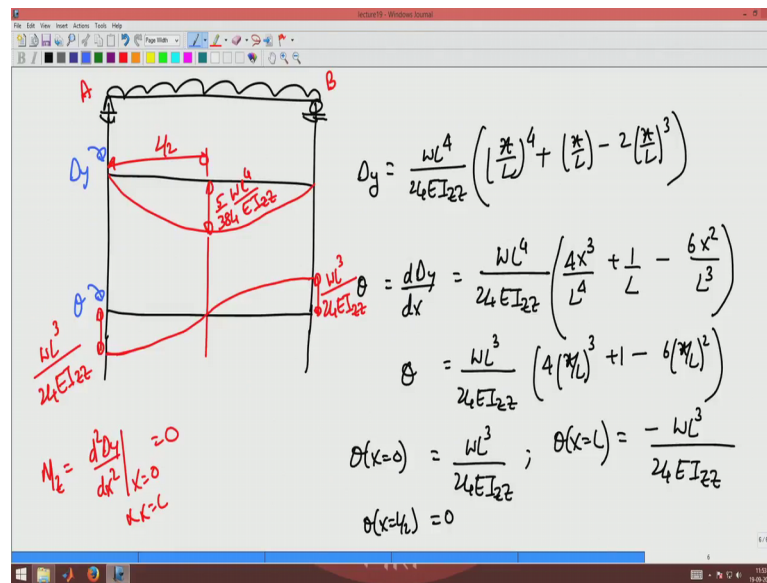 lecture19 - Windows Journal
File Edit View Insert Actions Tools Help
Page Width
B I
A B
L/2
Dy
5/384 WL^4/EIzz
θ
WL^3/24EIzz
WL^3/24EIzz
Mz = d^2Dy/dx^2 | x=0 & x=L = 0
Dy = WL^4/24EIzz ((x/L)^4 + (x/L) - 2(x/L)^3)
θ = dDy/dx = WL^4/24EIzz (4x^3/L^4 + 1/L - 6x^2/L^3)
θ = WL^3/24EIzz (4(x/L)^3 + 1 - 6(x/L)^2)
θ(x=0) = WL^3/24EIzz ; θ(x=L) = -WL^3/24EIzz
θ(x=L/2) = 0
6